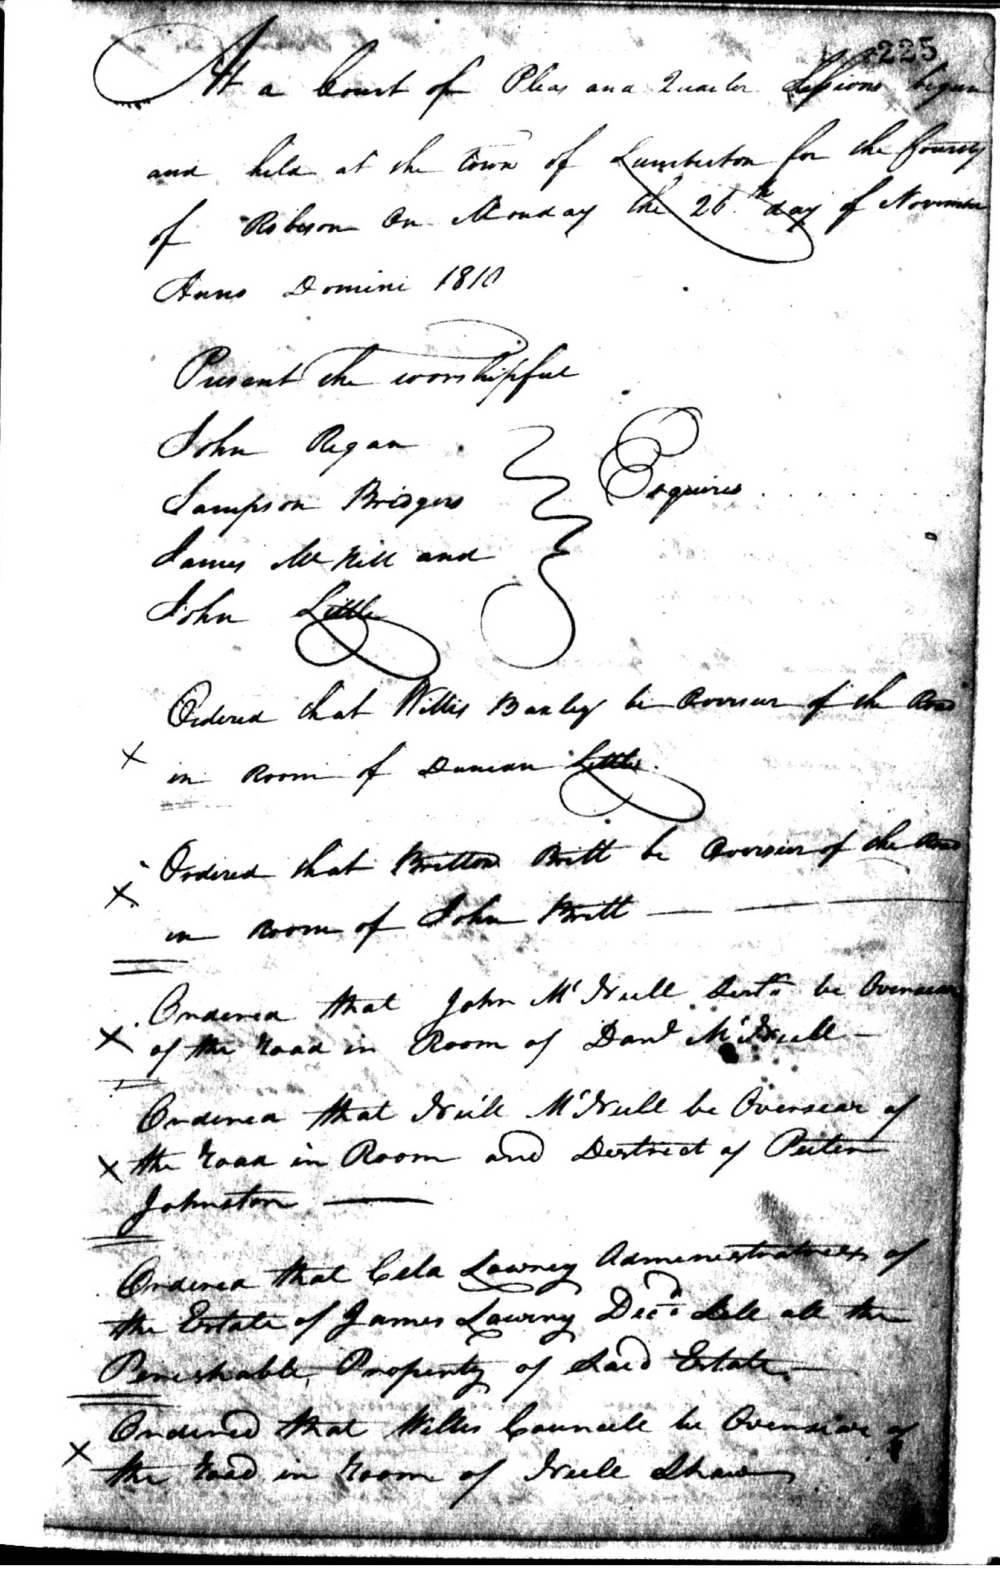 225
At a Court of Pleas and Quarter Sessions began
and held at the town of Lumberton for the County
of Robeson On Monday the 26th day of November
Anno Domini 1810
Present the worshipful
John Regan
Sampson Bridgers
Esquires
James Mc Nill and
John Little
Ordered that Willis Banley be Overseer of the Road
in Room of Duncan Little.
Ordered that Britton Britt be Overseer of the Road
in Room of John Britt
Ordered that John McNeill be Overseear
of the Road in Room of Danl McNeill
Ordered that Neill McNeill be Overseear of
the Road in Room and Destrect of Peter
Johnston
Ordered that Cela Lawney Administratreex of
the Estate of James Lawney Decd Sell all the
Perishable Property of Said Estate
Ordered that Willis Councell be Overseear of
the Road in Room of Neill Shaw